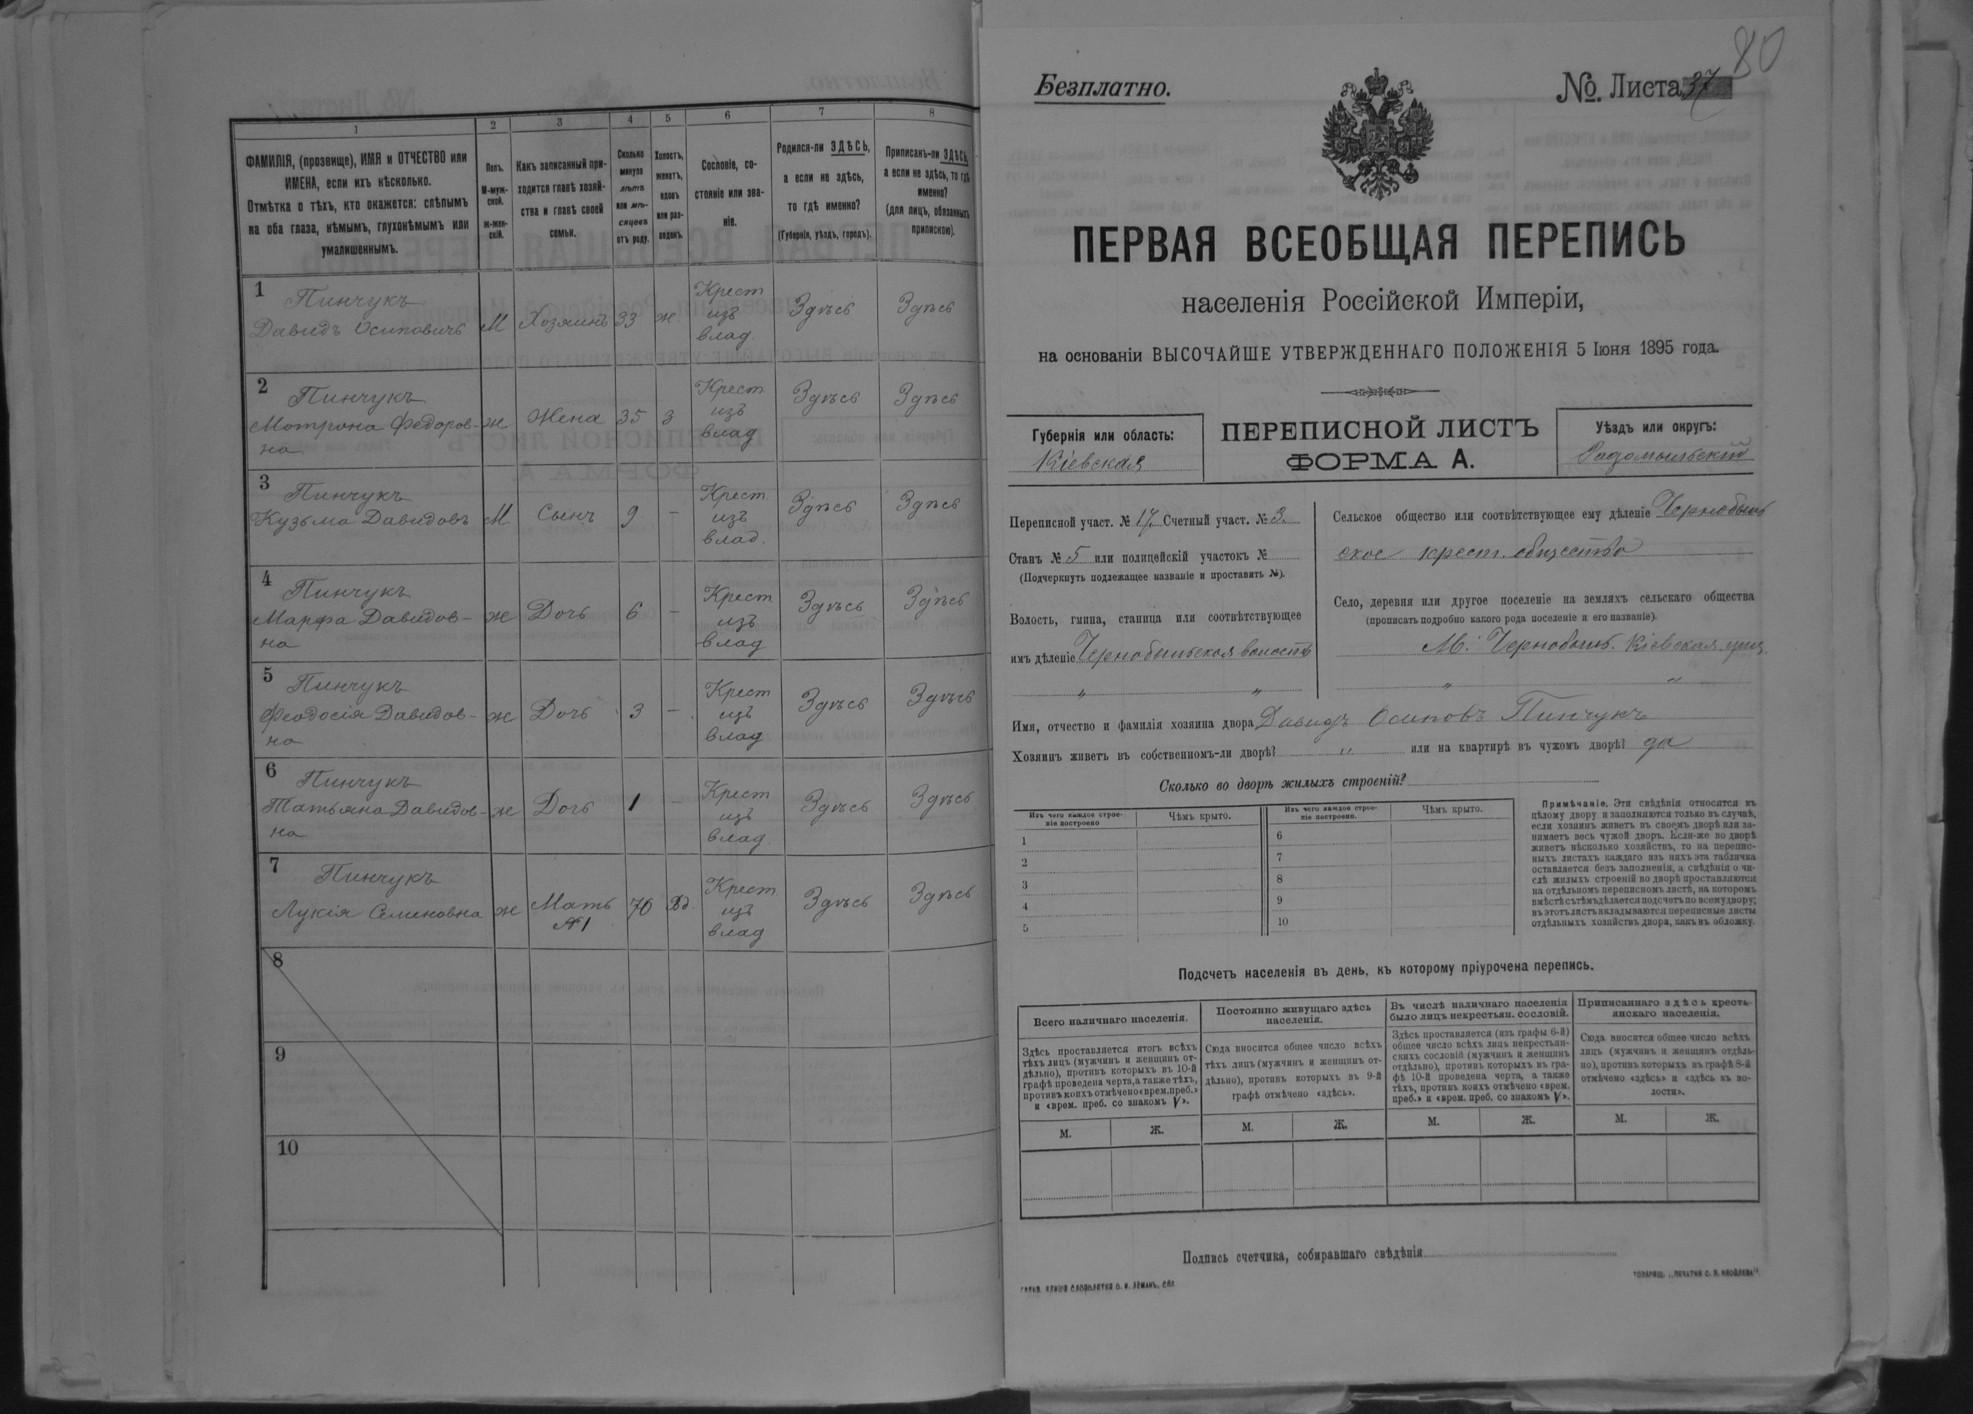 1 2 3 4 5 6 7 8
ФАМИЛІЯ, (прозвище), ИМЯ и ОТЧЕСТВО или
ИМЕНА, если ихъ нѣсколько.
Отмѣтка о тѣхъ, кто окажется: слѣпымъ
на оба глаза, нѣмымъ, глухонѣмымъ или
умалишеннымъ.
Полъ.
М-муж-
ской.
ж-жен-
скій.
Какъ записанный при-
ходится главѣ хозяй-
ства и главѣ своей
семьи.
Сколько
минуло
лѣтъ
или мѣ-
сяцевъ
отъ роду.
Холостъ,
женатъ,
вдовъ
или раз-
веденъ.
Сословіе, со-
стояніе или зва-
ніе.
Родился-ли ЗДѢСЬ,
а если не здѣсь,
то гдѣ именно?
(Губернія, уѣздъ, городъ).
Приписанъ-ли ЗДѢСЬ,
а если не здѣсь, то гдѣ
именно?
(для лицъ, обязанныхъ
припискою).
1 Пинчукъ
Давидъ Осиповичъ М Хозяинъ 33 ж. Крест изъ влад. Здѣсь Здѣсь
2 Пинчукъ
Мотрона Федоров-
на ж Жена 35 з Крест изъ влад Здѣсь Здѣсь
3 Пинчукъ
Кузьма Давидовъ М Сынъ 9 - Крест изъ влад. Здѣсь Здѣсь
4 Пинчукъ
Марфа Давидов-
на ж Дочь 6 - Крест изъ влад Здѣсь Здѣсь
5 Пинчукъ
Феодосія Давидов-
на ж Дочь 3 - Крест изъ влад Здѣсь Здѣсь
6 Пинчукъ
Татьяна Давидов-
на ж Дочь 1 Крест изъ влад. Здѣсь Здѣсь
7 Пинчукъ
Лукія Семеновна ж Мать №1 70 Вд. Крест изъ влад Здѣсь Здѣсь
8
9
10
80
Безплатно.
№ Листа 37
ПЕРВАЯ ВСЕОБЩАЯ ПЕРЕПИСЬ
населенія Россійской Имперіи,
на основаніи ВЫСОЧАЙШЕ УТВЕРЖДЕННАГО ПОЛОЖЕНІЯ 5 Іюня 1895 года.
Губернія или область:
Кіевская
ПЕРЕПИСНОЙ ЛИСТЪ
ФОРМА А.
Уѣздъ или округъ:
Радомысльскій
Переписной участ. № 17. Счетный участ. № 3.
Станъ № 5 или полицейскій участокъ №
(Подчеркнуть подлежащее названіе и проставить №).
Волость, гмина, станица или соотвѣтствующее
имъ дѣленіе Чернобыльская волость
" "
Сельское общество или соотвѣтствующее ему дѣленіе Чернобыль
ское крест. общество
Село, деревня или другое поселеніе на земляхъ сельскаго общества
(прописать подробно какого рода поселеніе и его названіе).
М. Чернобыль. Кіевская улиц.
" "
Имя, отчество и фамилія хозяина двора Давидъ Осиповъ Пинчукъ
Хозяинъ живетъ въ собственномъ-ли дворѣ? " или на квартирѣ въ чужомъ дворѣ? да
Сколько во дворѣ жилыхъ строеній?
Изъ чего каждое строе-
ніе построено
Чѣмъ крыто.
Изъ чего каждое строе-
ніе построено.
Чѣмъ крыто.
1 6
2 7
3 8
4 9
5 10
Примѣчаніе. Эти свѣдѣнія относятся къ
цѣлому двору и заполняются только въ случаѣ,
если хозяинъ живетъ въ своемъ дворѣ или за-
нимаетъ весь чужой дворъ. Если-же во дворѣ
живетъ нѣсколько хозяйствъ, то на перепис-
ныхъ листахъ каждаго изъ нихъ эта табличка
оставляется безъ заполненія, а свѣдѣнія о чи-
слѣ жилыхъ строеній во дворѣ проставляются
на отдѣльномъ переписномъ листѣ, на которомъ
вмѣстѣ съ тѣмъ дѣлается подсчетъ по всему двору;
въ этотъ листъ вкладываются переписные листы
отдѣльныхъ хозяйствъ двора, какъ въ обложку.
Подсчетъ населенія въ день, къ которому пріурочена перепись.
Всего наличнаго населенія.
Здѣсь проставляется итогъ всѣхъ
тѣхъ лицъ (мужчинъ и женщинъ от-
дѣльно), противъ которыхъ въ 10-й
графѣ проведена черта, а также тѣхъ,
противъ коихъ отмѣчено «врем. преб.»
и «врем. преб. со знакомъ V».
Постоянно живущаго здѣсь
населенія.
Сюда вносится общее число всѣхъ
тѣхъ лицъ (мужчинъ и женщинъ от-
дѣльно), противъ которыхъ въ 9-й
графѣ отмѣчено «здѣсь».
Въ числѣ наличнаго населенія
было лицъ некрестьян. сословій.
Здѣсь проставляется (изъ графы 6-й)
общее число всѣхъ лицъ некрестьян-
скихъ сословій (мужчинъ и женщинъ
отдѣльно), противъ которыхъ въ гра-
фѣ 10-й проведена черта, а также
тѣхъ, противъ коихъ отмѣчено «врем.
преб.» и «врем. преб. со знакомъ V».
Приписаннаго здѣсь кресть-
янскаго населенія.
Сюда вносится общее число всѣхъ
лицъ (мужчинъ и женщинъ отдѣль-
но), противъ которыхъ въ графѣ 8-й
отмѣчено «здѣсь» и «здѣсь въ во-
лости».
М. Ж. М. Ж. М. Ж. М. Ж.
Подпись счетчика, собиравшаго свѣдѣнія